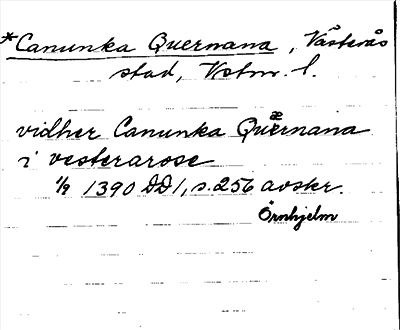 *Canunka Quernana, Västerås
stad, Vstm. l.
vidher Canunka Quærnana
i vesterarose
1/9 1390 DD 1, s. 256 avskr.
Örnhjelm